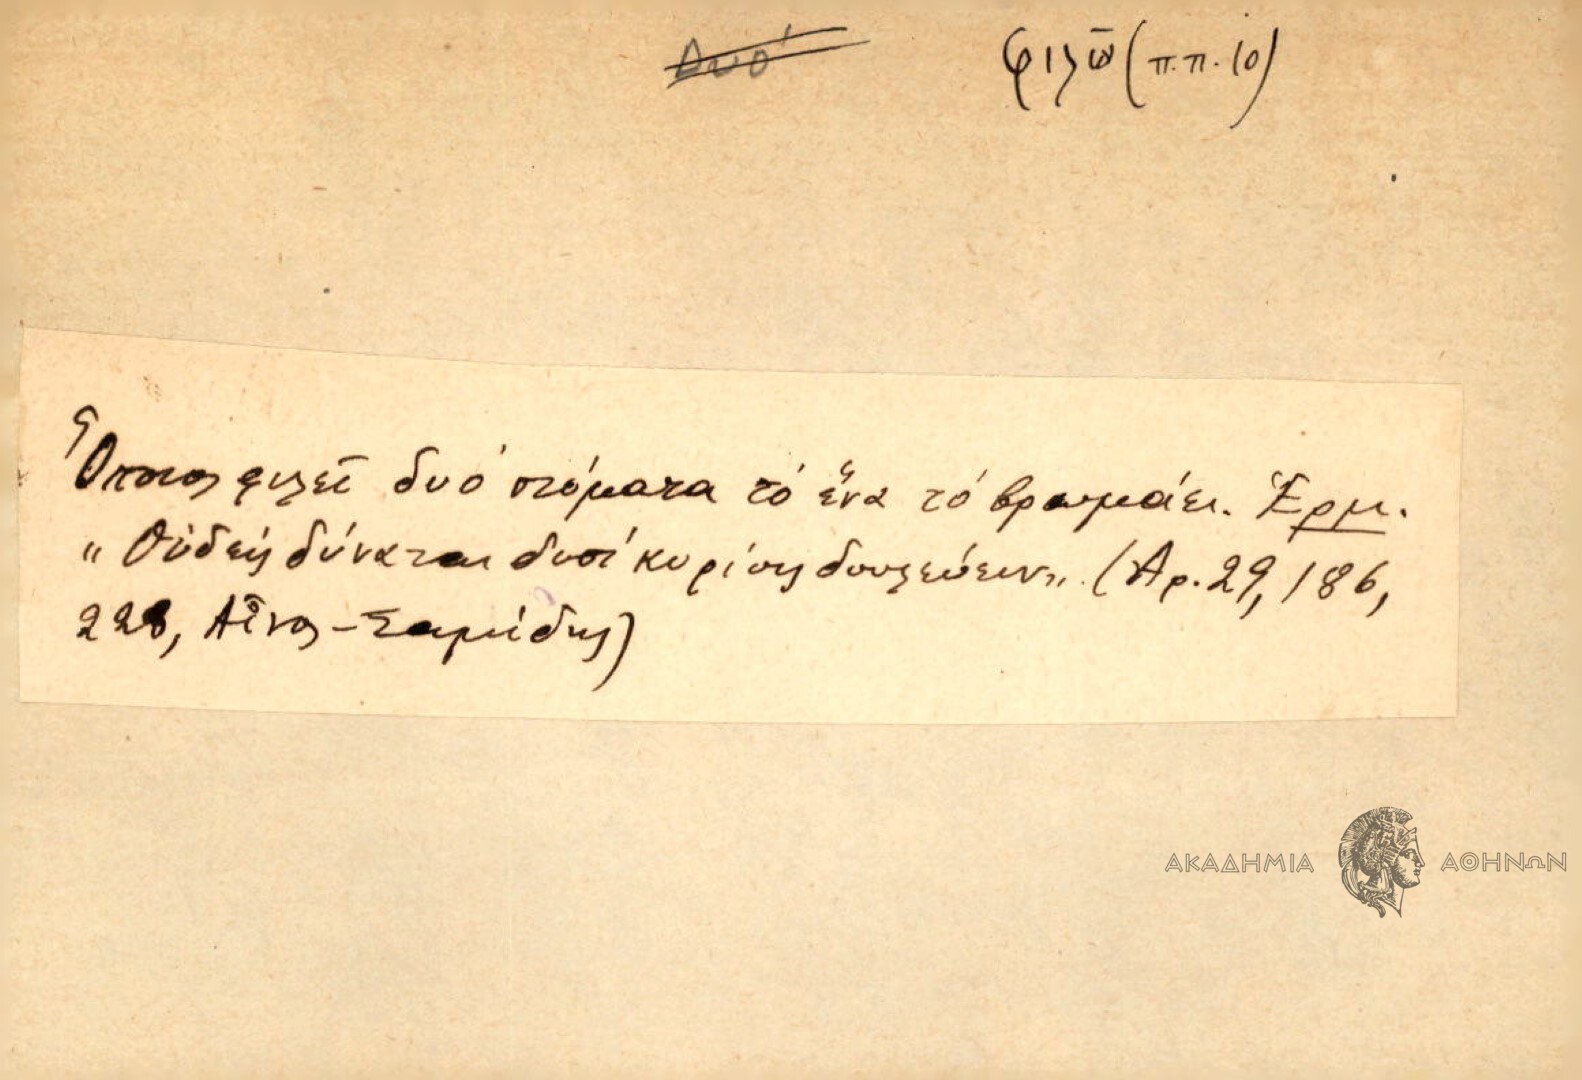 Δυό φιλῶ (π.π. 10)
Ὅποιος φιλεῖ δυό στόματα τό ἕνα τό βρωμάει. Ἑρμ.
"Οὐδείς δύναται δυσί κυρίοις δουλεύειν". (Αρ. 29, 186,
228, Αἶνος - Σαμίδης)
ΑΚΑΔΗΜΙΑ ΑΘΗΝΩΝ